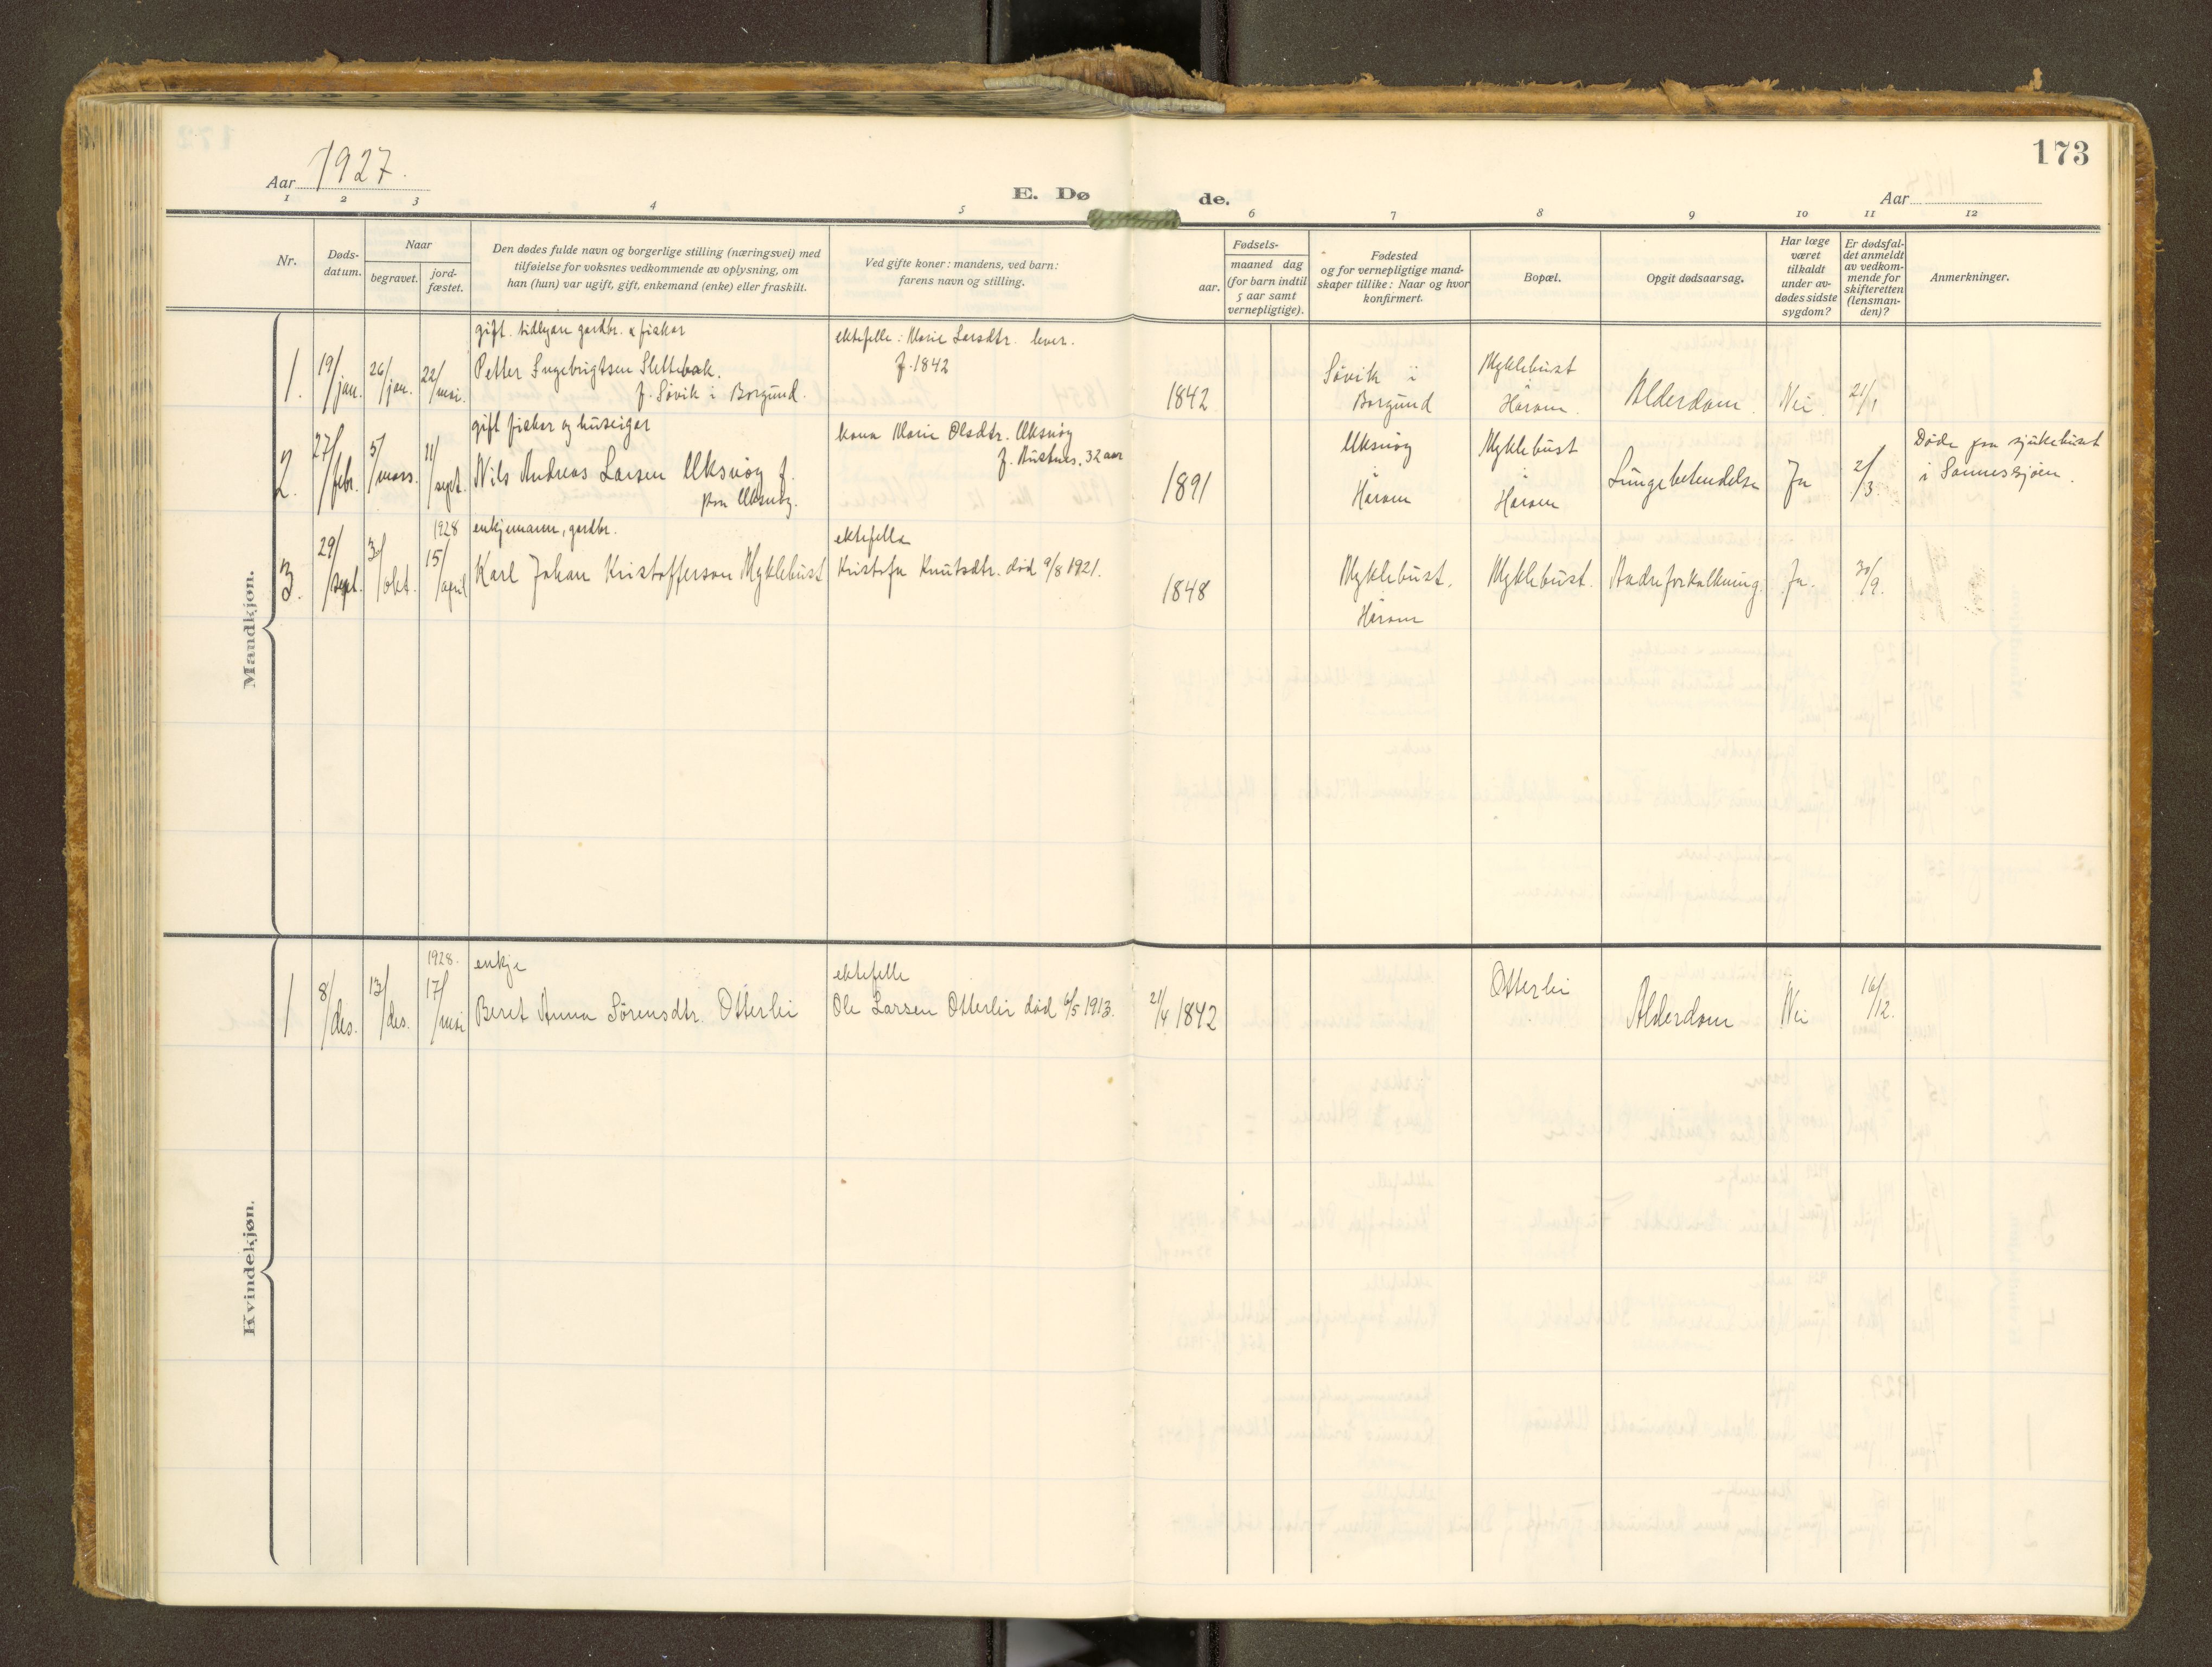 173
Aar 1927.
E. Dø de.
Aar
1 2 3 4 5 6 7 8 9 10 11 12
Nr.
Døds-
datum.
Naar
begravet.
jord-
fæstet.
Den dødes fulde navn og borgerlige stilling (næringsvei) med
tilføielse for voksnes vedkommende av oplysning, om
han (hun) var ugift, gift, enkemand (enke) eller fraskilt.
Ved gifte koner: mandens, ved barn:
farens navn og stilling.
Fødsels-
aar.
maaned dag
(for barn indtil
5 aar samt
vernepligtige).
Fødested
og for vernepligtige mand-
skaper tillike: Naar og hvor
konfirmert.
Bopæl.
Opgit dødsaarsag.
Har læge
været
tilkaldt
under av-
dødes sidste
sygdom?
Er dødsfal-
det anmeldt
av vedkom-
mende for
skifteretten
(lensman-
den)?
Anmerkninger.
Mandkjøn.
1. 19/jan. 26/jan. 22/mai.
gift. tidlegare gardbr. & fiskar
Petter Ingebrigtsen Slettebak.
f. Søvik i Borgund.
ektefelle: Marie Larsdtr. lever.
f. 1842
1842
Søvik i
Borgund
Myklebust
Haram.
Alderdom. Nei. 21/1
2. 27/febr. 5/mars. 11/sept.
gift fiskar og huseigar
Nils Andreas Larsen Uksnøy f.
paa Uksnøy.
kona Marie Olsdtr. Uksnøy
f. Austnes. 32 aar
1891
Uksnøy
Haram
Myklebust
Haram
Lungebetendelse Ja 2/3.
Døde paa sjukehuset
i Sannessjøen.
3. 29/sept. 3/okt. 1928 15/april
enkjemann, gardbr.
Karl Johan Kristofferson Myklebust
ektefella
Kristofa Knutsdtr. død 9/8 1921.
1848
Myklebust.
Haram
Myklebust. Aadreforkalkning. Ja. 30/9.
Kvindekjøn.
1 8/des. 13/des. 1928. 17/mai
enkje
Beret Anna Sørensdtr. Otterlei
ektefelle
Ole Larsen Otterlei død 6/5 1913.
21/4 1842
Otterlei
Alderdom Nei 16/12.